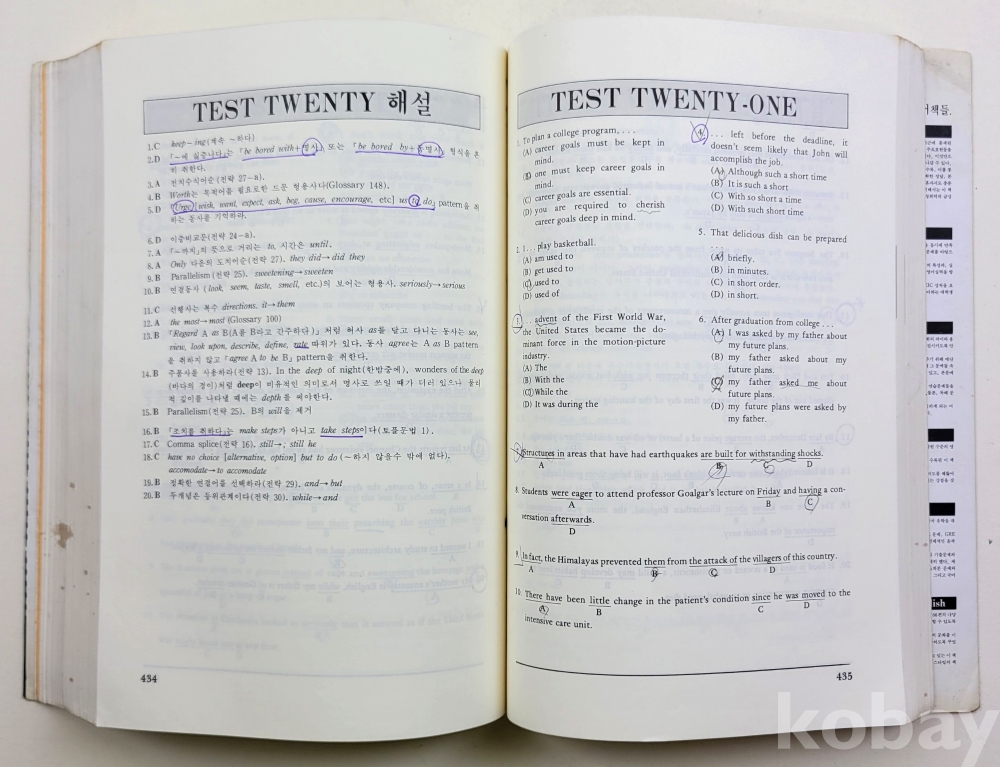 TEST TWENTY 해설
1. C keep ~ing(계속 ~하다)
2. D 「~에 싫증나다」는 「be bored with+명사」 또는 「be bored by+동명사」 형식을 흔
히 취한다.
3. A 전치수식어순(전략 27-a).
4. B Worth는 목적어를 필요로한 드문 형용사다(Glossary 148).
5. D 「Urge[wish, want, expect, ask, beg, cause, encourage, etc] us to do」 pattern을 취
하는 동사를 기억하라.
6. D 이중비교문(전략 24-a).
7. A 「~까지」의 뜻으로 거리는 to, 시간은 until.
8. A Only 다음의 도치어순(전략 27). they did→did they
9. B Parallelism(전략 25). sweetening→sweeten
10. B 연결동사 (look, seem, taste, smell, etc.)의 보어는 형용사. seriously→serious
11. C 선행사는 복수 directions. it→them
12. A the most→most (Glossary 100)
13. B 「Regard A as B(A를 B라고 간주하다)」처럼 허사 as를 달고 다니는 동사는 see,
view, look upon, describe, define, rate 따위가 있다. 동사 agree는 A as B pattern
을 취하지 않고 「agree A to be B」 pattern을 취한다.
14. B 주품사를 사용하라(전략 13). In the deep of night(한밤중에), wonders of the deep
(바다의 경이)처럼 deep이 비유적인 의미로서 명사로 쓰일 때가 더러 있으나 물리
적 깊이를 나타낼 때에는 depth를 써야한다.
15. B Parallelism(전략 25). B의 will을 제거
16. B 「조치를 취하다」는 make steps가 아니고 take steps이다(토플문법 1).
17. C Comma splice(전략 16). still→; still he
18. C have no choice [alternative, option] but to do (~하지 않을수 밖에 없다).
accomodate→to accomodate
19. B 정확한 연결어를 선택하라(전략 29). and→but
20. B 두개념은 동위관계이다(전략 30). while→and
434
TEST TWENTY-ONE
1. To plan a college program, . . . .
(A) career goals must be kept in
mind.
(B) one must keep career goals in
mind.
(C) career goals are essential.
(D) you are required to cherish
career goals deep in mind.
2. I . . . play basketball.
(A) am used to
(B) get used to
(C) used to
(D) used of
3. . . . advent of the First World War,
the United States became the do-
minant force in the motion-picture
industry.
(A) The
(B) With the
(C) While the
(D) It was during the
4. . . . left before the deadline, it
doesn't seem likely that John will
accomplish the job.
(A) Although such a short time
(B) It is such a short
(C) With so short a time
(D) With such short time
5. That delicious dish can be prepared
. . . .
(A) briefly.
(B) in minutes.
(C) in short order.
(D) in short.
6. After graduation from college . . .
(A) I was asked by my father about
my future plans.
(B) my father asked about my
future plans.
(C) my father asked me about
future plans.
(D) my future plans were asked by
my father.
7. Structures in areas that have had earthquakes are built for withstanding shocks.
A B C D
8. Students were eager to attend professor Goalgar's lecture on Friday and having a con-
A B C
versation afterwards.
D
9. In fact, the Himalayas prevented them from the attack of the villagers of this country.
A B C D
10. There have been little change in the patient's condition since he was moved to the
A B C D
intensive care unit.
435
kobay